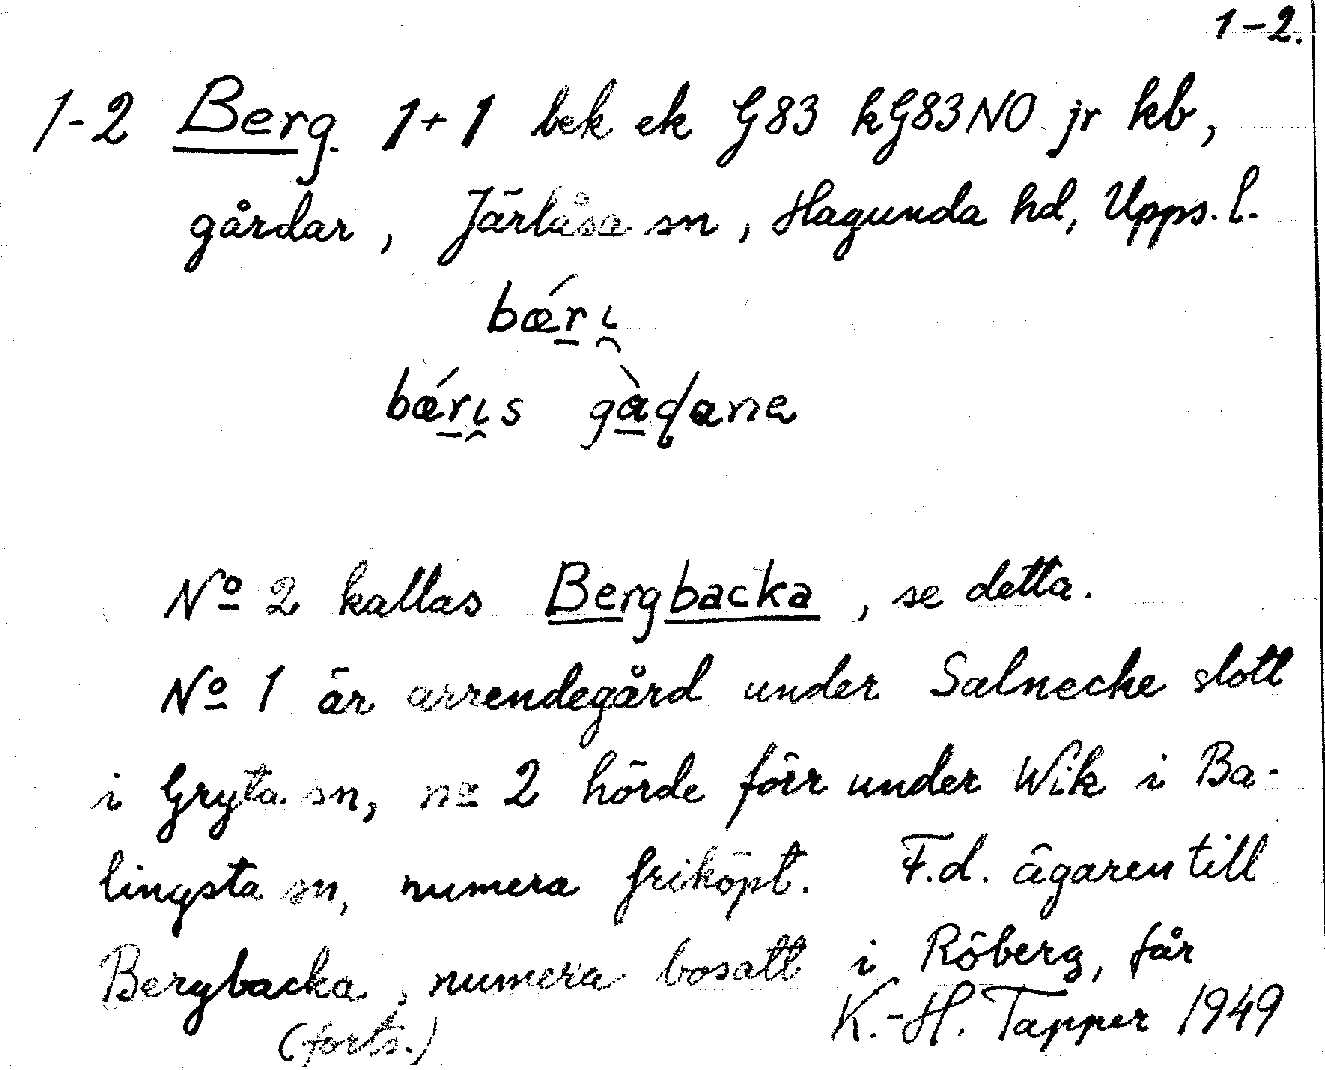 1-2.
1-2 Berg. 1+1 bek ek G83 kG83NO jr kb,
gårdar, Järlåsa sn, Hagunda hd, Upps. l.
bǽrị
bǽrịs gàḍane
No 2 kallas Bergbacka, se detta.
No 1 är arrendegård under Salnecke slott
i Gryta sn, no 2 hörde förr under Wik i Ba-
lingsta sn, numera friköpt. F.d. ägaren till
Bergbacka, numera bosatt i Röberg, får
(forts.) K.-H. Tapper 1949